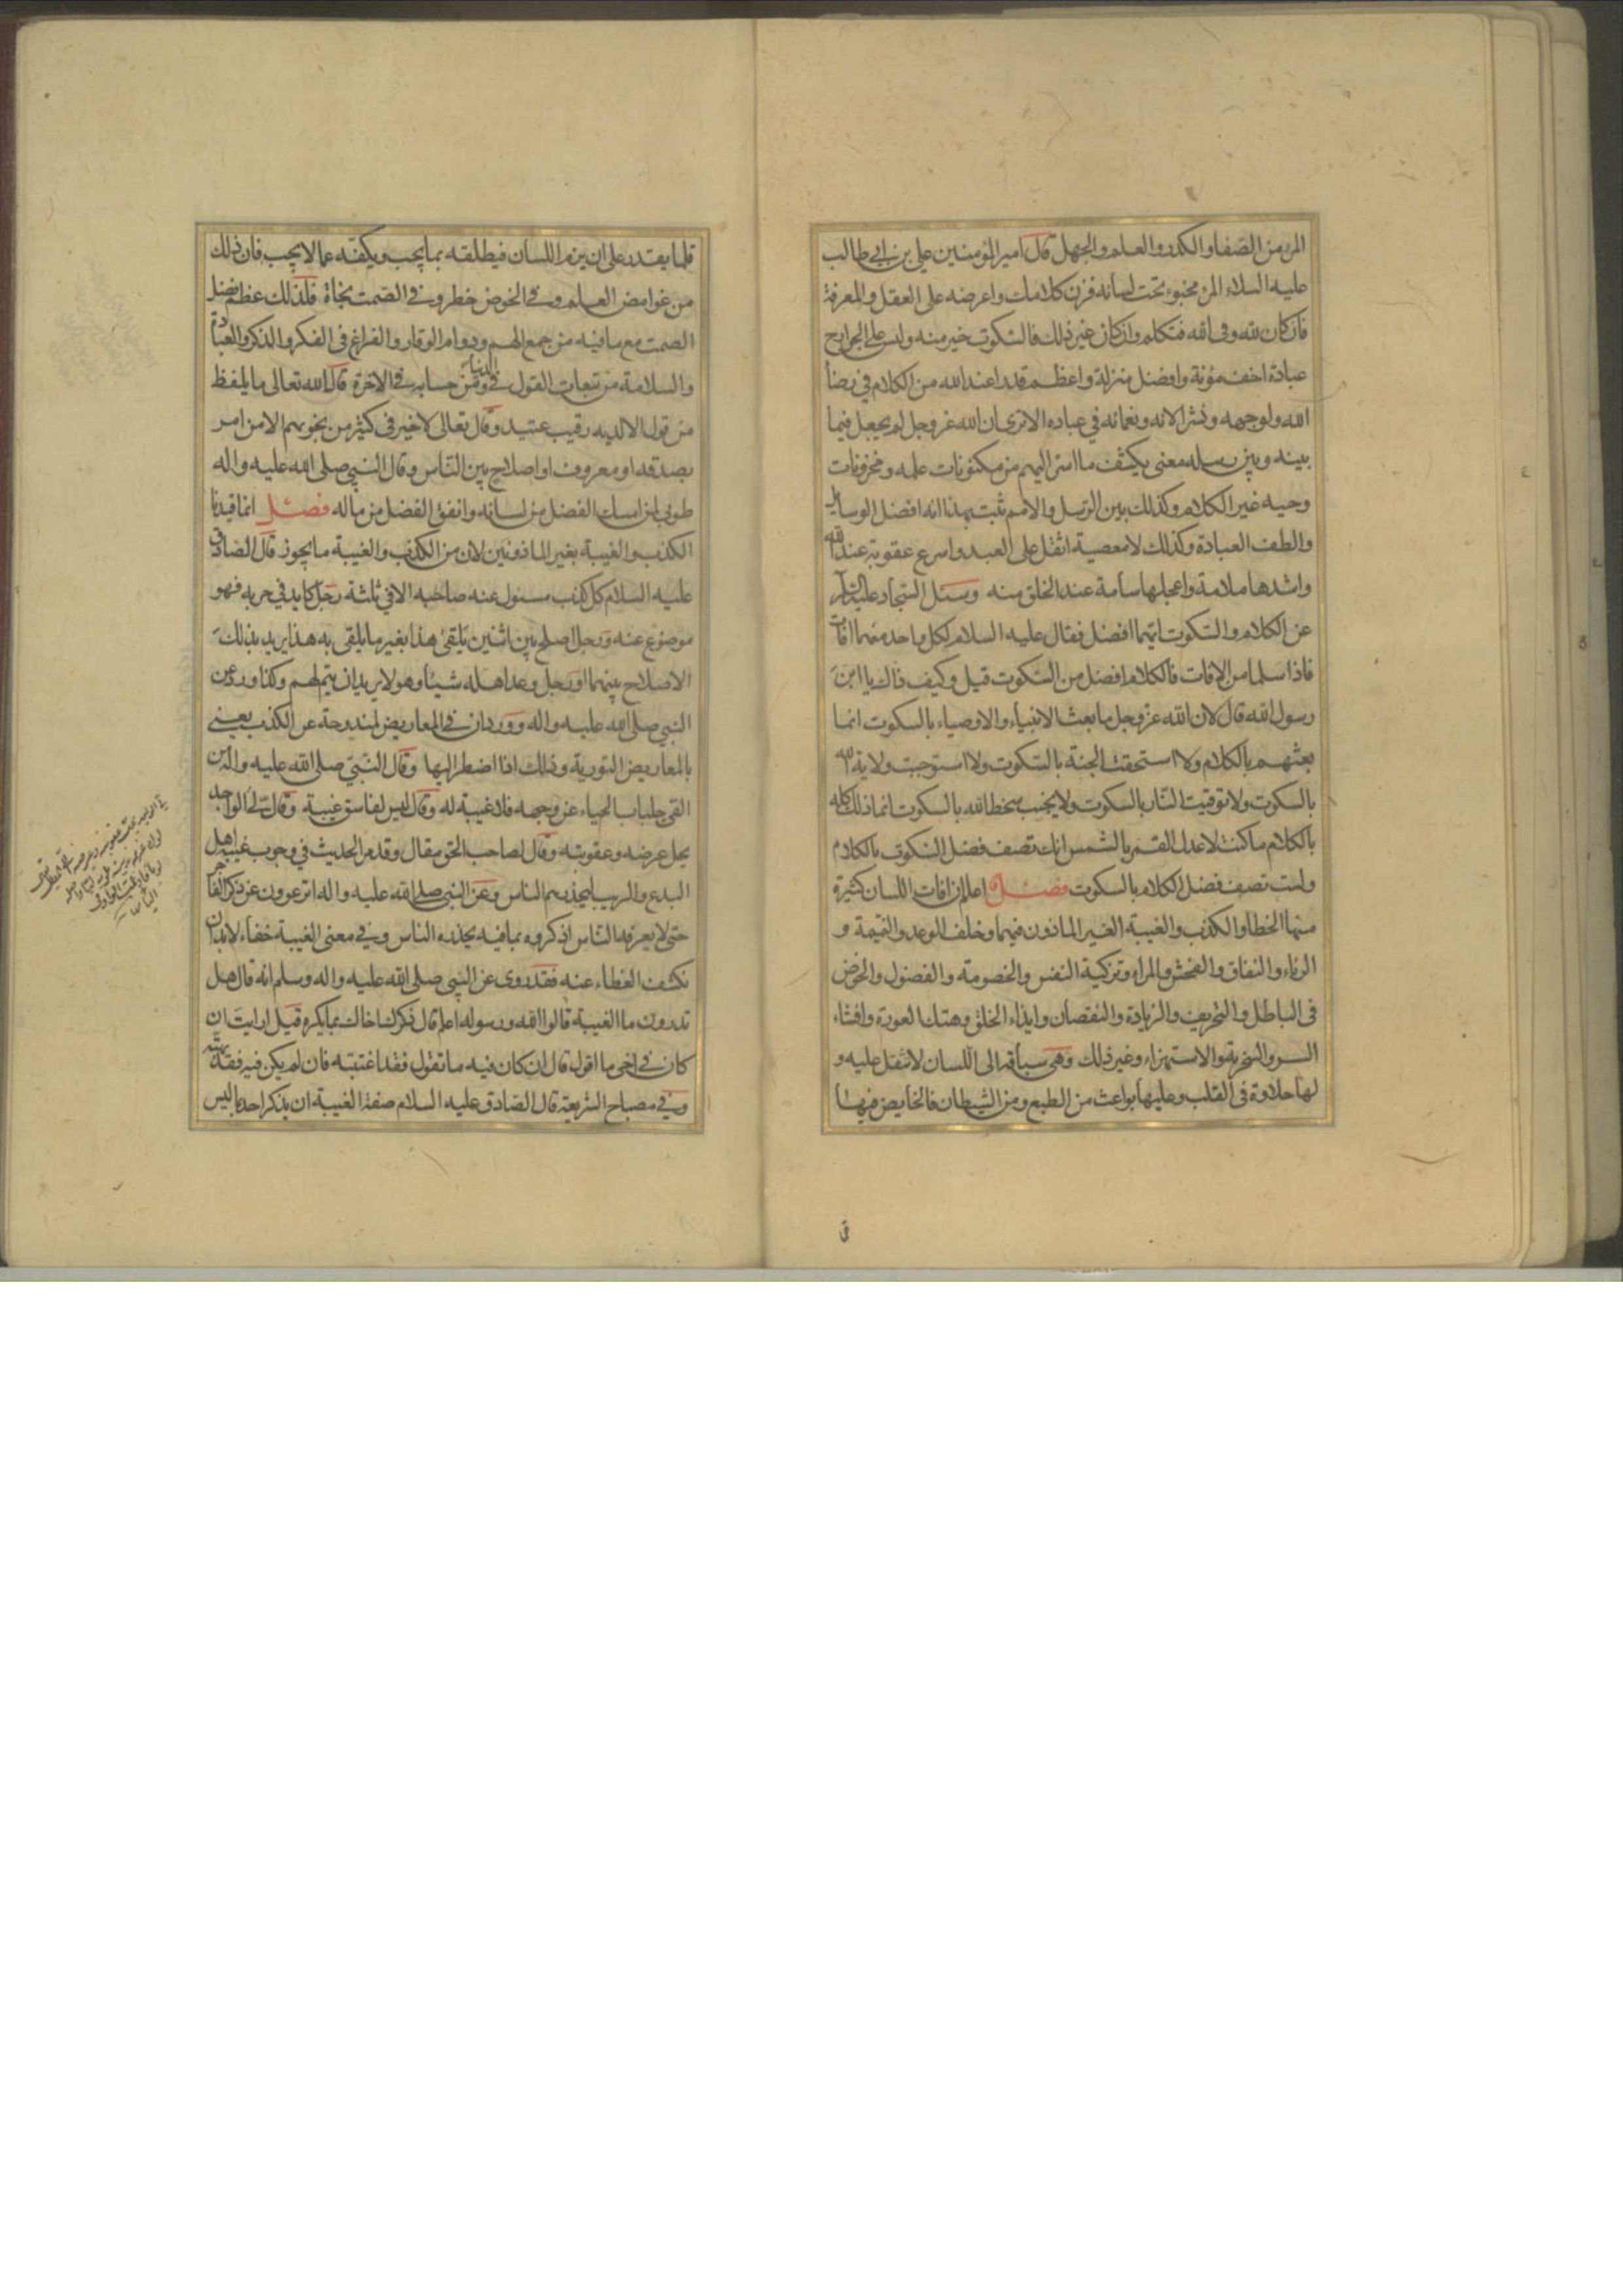 المرء من الصفا والكدر والعلم والجهل قال امير المؤمنين علي بن ابي طالب
عليه السلام المرء مخبوء تحت لسانه فزن كلامك واعرضه على العقل والمعرفة
فان كان لله وفى الله فتكلم وان كان غير ذلك فالسكوت خير منه وليس على الجوارح
عبادة اخف مؤنة وافضل منزلة واعظم قدرا عند الله من الكلام في رضا
الله ولوجهه ونشر الائه ونعمائه في عباده الا ترى ان الله عز وجل لم يجعل فيما
بينه وبين رسله معنى يكشف ما اسر اليهم من مكنونات علمه ومخزونات
وحيه غير الكلام وكذلك بين الرسل والامم ثبت بهذا انه افضل الوسايل
والطف العبادة وكذلك لا معصية اثقل على العبد واسرع عقوبة عند الله
واشدها ملامة واعجلها سأمة عند الخلق منه وسئل السجاد عليه السلام
عن الكلام والسكوت ايهما افضل فقال عليه السلام لكل واحد منهما افات
فاذا سلما من الافات فالكلام افضل من السكوت قيل وكيف ذاك يا ابن
رسول الله قال لان الله عز وجل ما بعث الانبياء والاوصياء بالسكوت انما
بعثهم بالكلام ولا استحقت الجنة بالسكوت ولا استوجبت ولاية الله
بالسكوت ولا توقيت النار بالسكوت ولا يجنب سخط الله بالسكوت انما ذلك كله
بالكلام ما كنت لاعدل القمر بالشمس انك تصف فضل السكوت بالكلام
ولست تصف فضل الكلام بالسكوت فصل اعلم ان افات اللسان كثيرة
منها الخطا والكذب والغيبة الغير الماذون فيهما وخلف الوعد والنميمة و
الرياء والنفاق والفحش والمراء وتزكية النفس والخصومة والفضول والخوض
فى الباطل والتحريف والزيادة والنقصان وايذاء الخلق وهتك العورة وافشاء
السر والسخرية والاستهزاء وغير ذلك وهى سباقة الى اللسان لا تثقل عليه و
لها حلاوة فى القلب وعليها بواعث من الطبع ومن الشيطان فالخايض فيها
ق
قلما يقدر على ان يزم اللسان فيطلقه بما يحب ويكفه عما لا يحب فان ذلك
من غوامض العلم وفي الخوض خطر وفي الصمت نجاة فلذلك عظم فضل
الصمت مع ما فيه من جمع الهم ودوام الوقار والفراغ فى الفكر والذكر والعبادة
والسلامة من تبعات القول في الدنيا ومن حسابه في الاخرة قال الله تعالى ما يلفظ
من قول الا لديه رقيب عتيد وقال تعالى لا خير فى كثير من نجويهم الا من امر
بصدقة او معروف او اصلاح بين الناس وقال النبي صلى الله عليه واله
طوبى لمن امسك الفضل من لسانه وانفق الفضل من ماله فصل انما قيدنا
الكذب والغيبة بغير الماذونين لان من الكذب والغيبة ما يجوز قال الصادق
عليه السلام كل كذب مسئول عنه صاحبه الا في ثلثة رجل كايد في حربه فهو
موضوع عنه ورجل اصلح بين اثنين يلقى هذا بغير ما يلقى به هذا يريد بذلك
الاصلاح بينهما او رجل وعد اهله شيئا وهو لا يريد ان يتم لهم وكذا ورد عن
النبي صلى الله عليه واله وورد ان في المعاريض لمندوحة عن الكذب يعني
بالمعاريض التورية وذلك اذا اضطر اليها وقال النبي صلى الله عليه واله من
القى جلباب الحياء عن وجهه فلا غيبة له وقال ليس لفاسق غيبة وقال لي الواجد
يحل عرضه وعقوبته وقال لصاحب الحق مقال وقد مر الحديث في وجوب غيبة اهل
البدع والريب ليحذرهم الناس وعن النبي صلى الله عليه واله اترعوون عن ذكر الفاجر
حتى لا يعرفه الناس اذكروه بما فيه يحذره الناس وفي معنى الغيبة خفاء لابد ان
نكشف الغطاء عنه فقد روى عن النبي صلى الله عليه واله وسلم انه قال هل
تدرون ما الغيبة قالوا الله ورسوله اعلم قال ذكرك اخاك بما يكره قيل ارايت ان
كان في اخى ما اقول قال ان كان فيه ما تقول فقد اغتبته فان لم يكن فيه فقد بهته
وفي مصباح الشريعة قال الصادق عليه السلام صفة الغيبة ان يذكر احد بما ليس